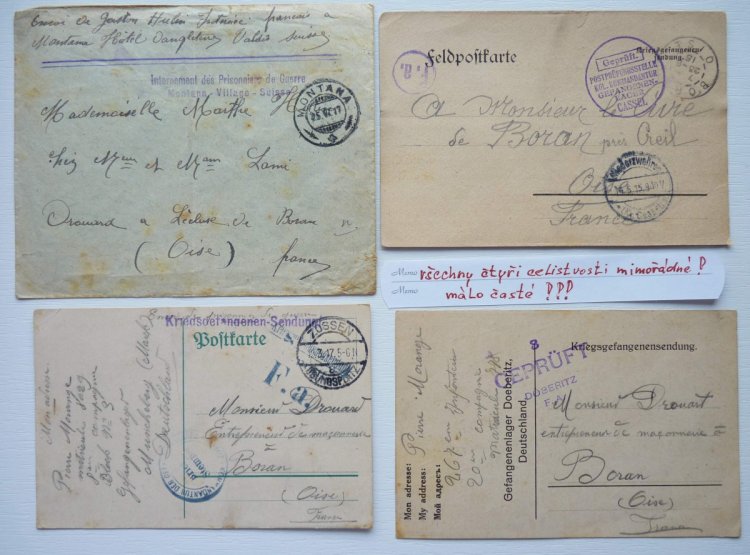 Envoi de Gaston Hulin Interné français à
Montana Hôtel d'angleterre Valais Suisse
Internement des Prisonniers de Guerre
Montana - Village - Suisse
MONTANA
25.VI.17
Mademoiselle Marthe
chez Mr et Mam Lami
Drouard a L'écluse de Boran
(Oise)
france
Feldpostkarte
Kriegsgefangenen-
sendung.
F. a.
Geprüft.
POSTPRÜFUNGSSTELLE
KOMMANDANTUR
GEFANGENEN-
LAGER
CASSEL
A Monsieur le Curé
de Boran près Creil
Oise
France
Niederzwehren
Memo
všechny čtyři celistvosti mimořádné!
Memo
málo časté !!!
Kriegsgefangenen-Sendung
Postkarte
ZOSSEN
.3.17.5-6N
F. a.
Monsieur Drouart
Entrepreneur de maçonnerie
à
Boran
(Oise)
France
Pierre Morange
compagnie
Gefangenenlager
Deutschland
8
GEPRÜFT
DÖBERITZ
F.A.
Kriegsgefangenensendung.
Monsieur Drouart
entrepreneur de maçonnerie à
Boran
(Oise)
France
Mon adresse:
My address:
Мой адресъ:
Pierre Morange
267 em Infanterie
20em compagnie
Gefangenenlager Doeberitz,
Deutschland.